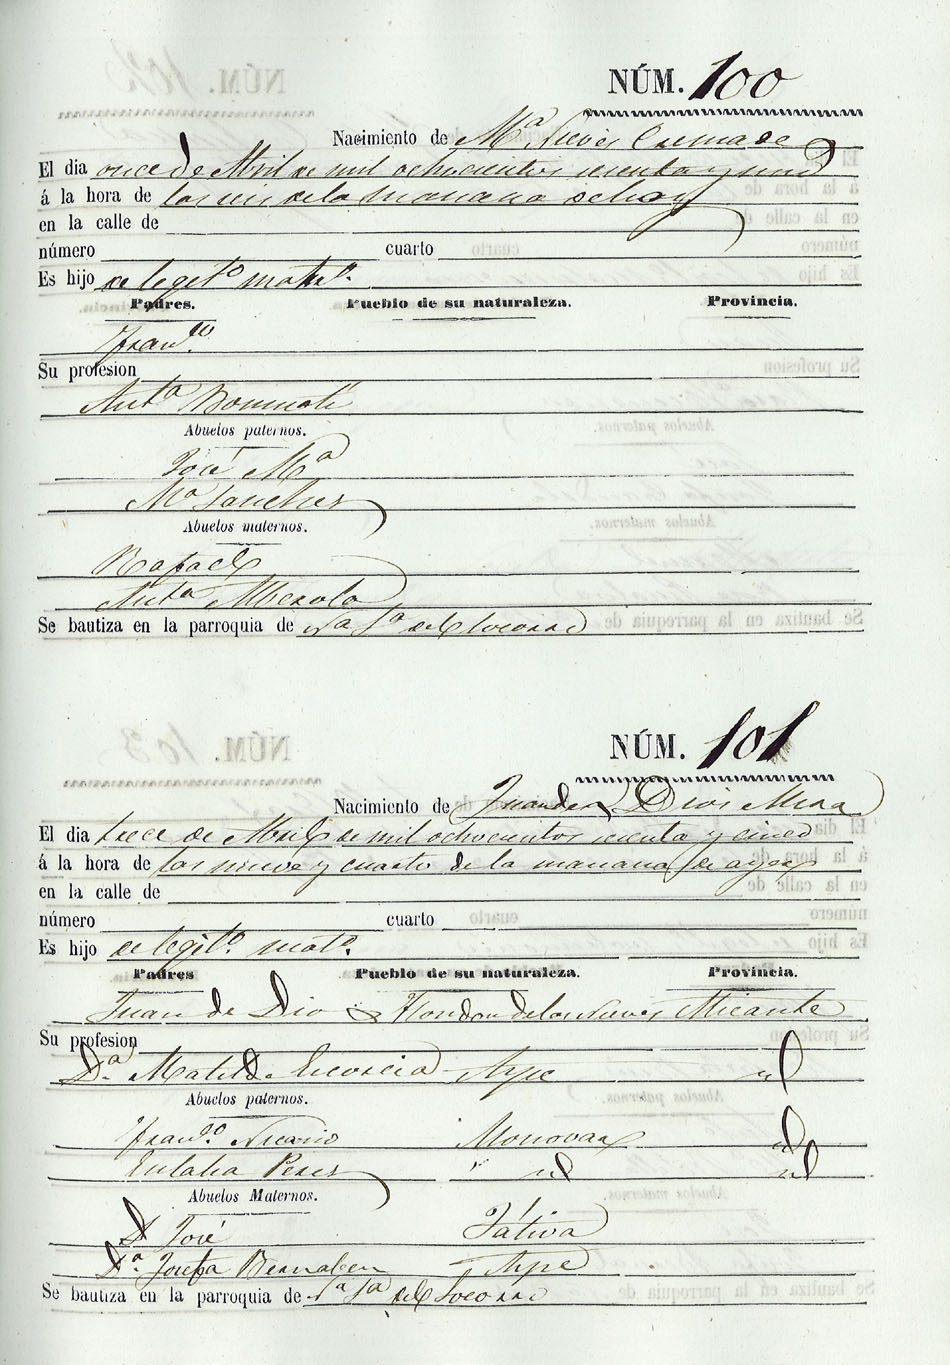 NÚM. 100
Nacimiento de Mª Nieves Cremades
El dia once de Abril de mil ochocientos sesenta y cinco
á la hora de las seis de la manana de hoy
en la calle de
número cuarto
Es hijo de legitº matrº.
Padres. Pueblo de su naturaleza. Provincia.
Franco.
Su profesion
Antª
Abuelos paternos.
José Mª
Mª Sanches
Abuelos maternos.
Rafael
Antª Alberola
Se bautiza en la parroquia de Nª Sª del Socorro
NÚM. 101
Nacimiento de Juan de Dios Mira
El dia trece de Abril de mil ochocientos sesenta y cinco
á la hora de las nueve y cuarto de la manana de ayer
en la calle de
número cuarto
Es hijo de legitº. matº.
Padres Pueblo de su naturaleza. Provincia.
Juan de Dios Hondon de las Nieves Alicante
Su profesion
Dª Matilde Aspe id
Abuelos paternos.
Franco Nicasio Monovar id
Eulalia Peres " id id
Abuelos Maternos.
D José Játiva
Dª Josefa Bernabeu Aspe
Se bautiza en la parroquia de Nª Sª del Socorro